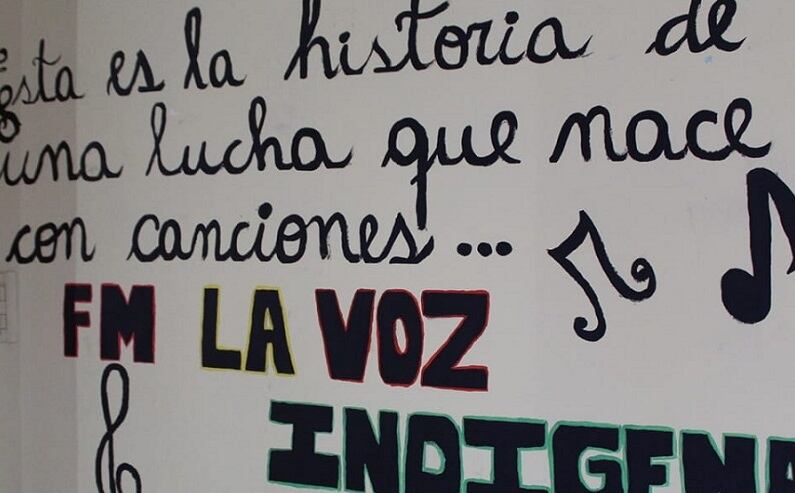 esta es la historia de
una lucha que nace
con canciones...
FM LA VOZ
INDIGENA